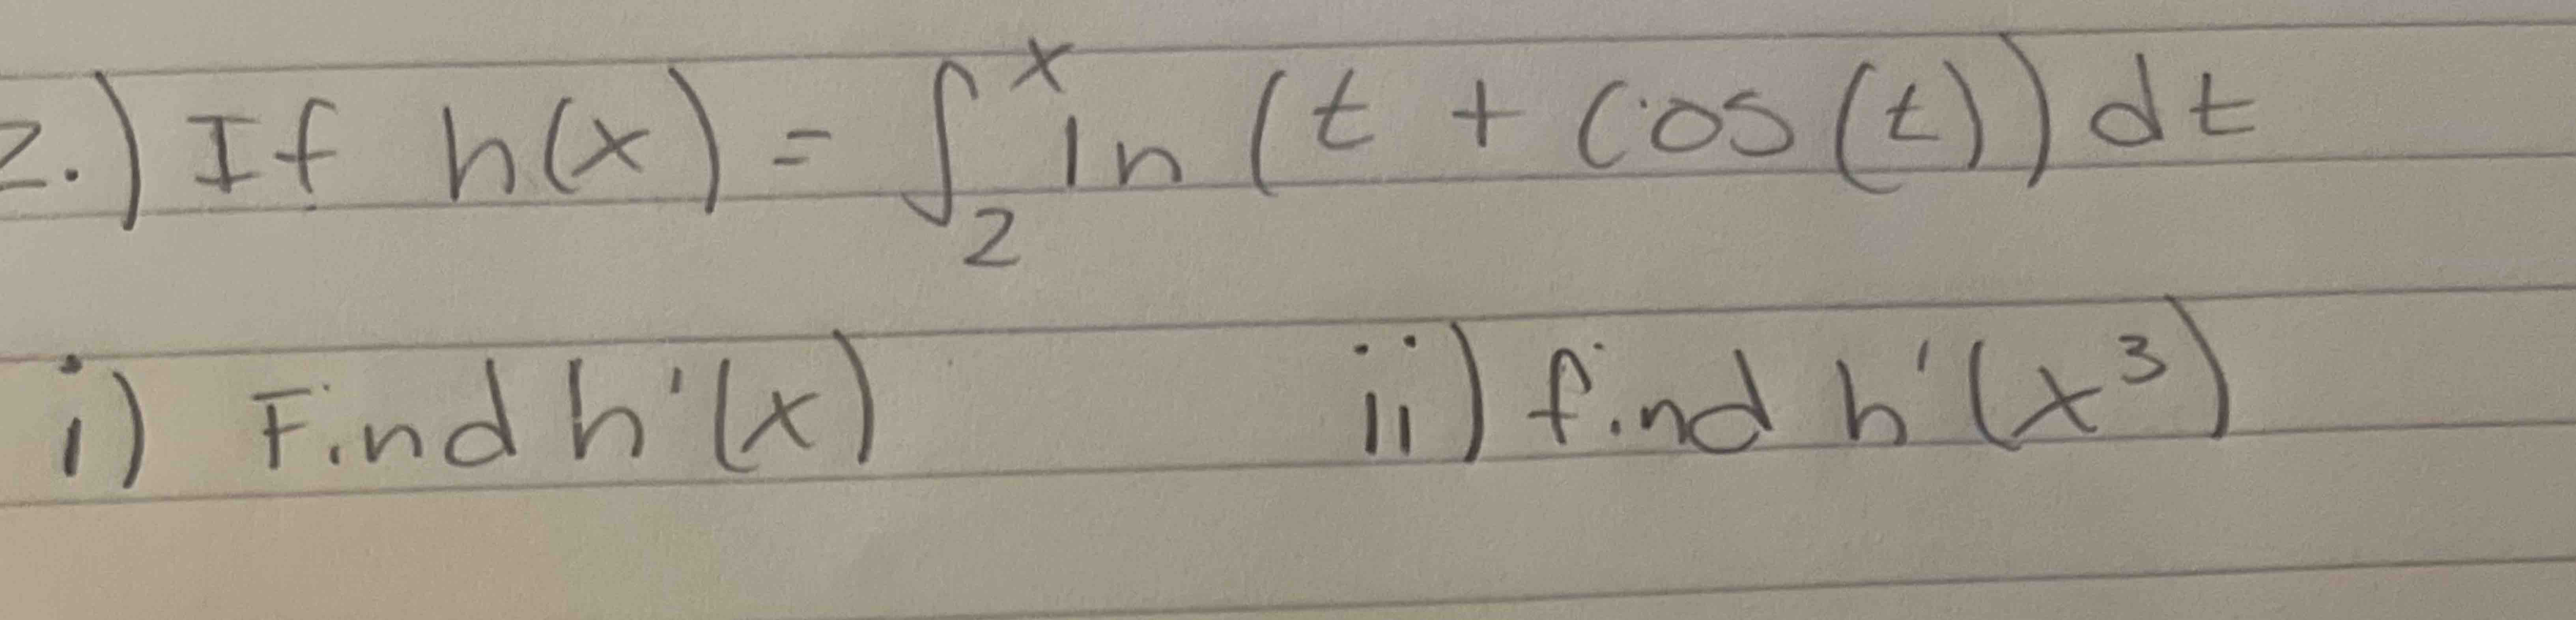 2.) If h(x) = ∫₂ˣ ln (t + cos(t)) dt
i) Find h'(x) ii) find h'(x³)